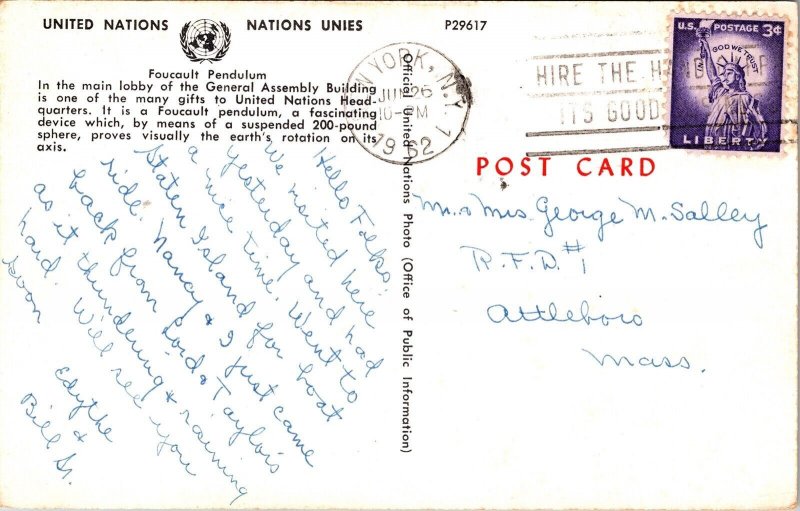 UNITED NATIONS NATIONS UNIES
P29617
Foucault Pendulum
In the main lobby of the General Assembly Building
is one of the many gifts to United Nations Head-
quarters. It is a Foucault pendulum, a fascinating
device which, by means of a suspended 200-pound
sphere, proves visually the earth's rotation on its
axis.
Hello Folks,
We visited here
yesterday and had
a nice time. Went to
Staten Island for boat
ride. Nancy & I just came
back from Lord & Taylors
as it thundering & raining
hard. Will see you
soon
Edythe
&
Bill Sr.
Official United Nations Photo (Office of Public Information)
YORK, N.Y. 1
JUN 26
10 PM
1962
HIRE THE H
ITS GOOD
U.S. POSTAGE 3¢
IN GOD WE TRUST
LIBERTY
POST CARD
Mr. & Mrs. George M. Salley
R.F.D. #1
Attleboro
Mass.